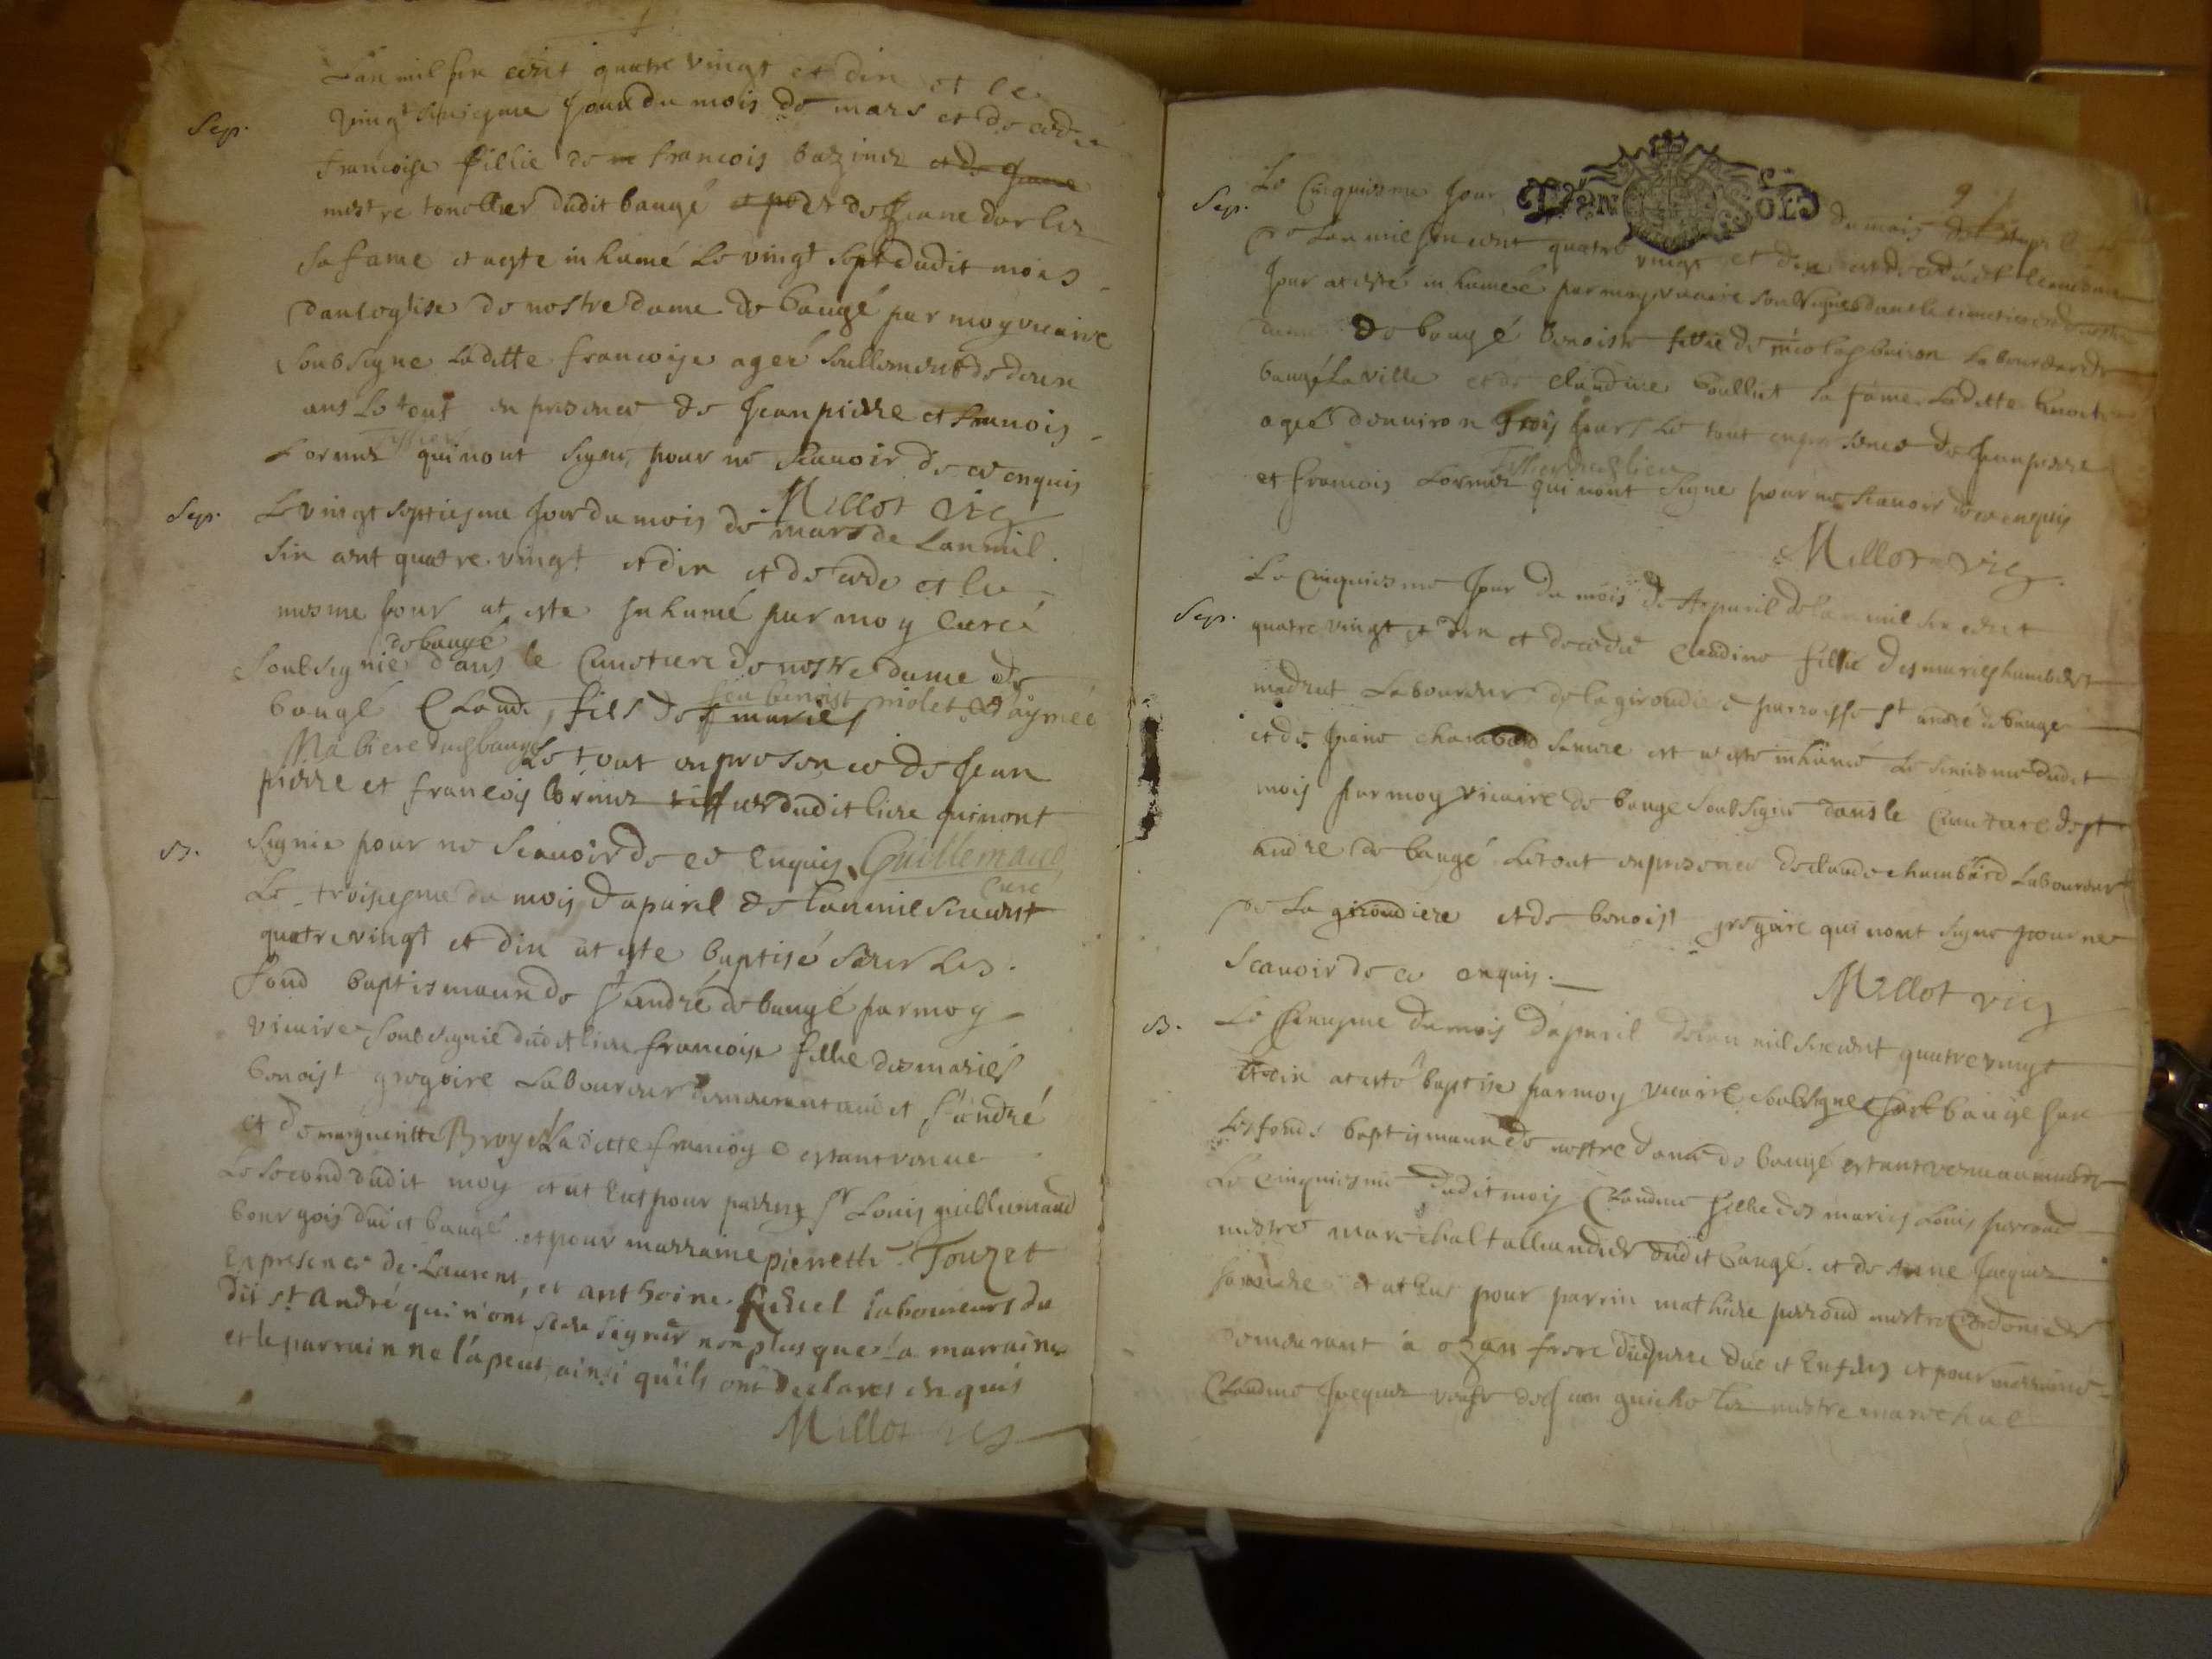 Lan mil six cent quatre vingt et dix et le
Sep. vingt jour du mois de mars et decede
francoise fillie de francois baziner et de Jeane
mestre tonellier dudit baugé et de Jeane
sa fame et a este inhumé le vingt sept dudit mois
dans leglise de nostre dame de baugé par moy vicaire
soubsigne laditte francoise ageé seullement de deux
ans le tout en presence de Jean pierre et francois
tissier
Lornuz qui nont signe pour ne scauoir de ce enquis
Millot vic
Sep. Le vingt septiesme jour du mois de mars de Lan mil
six cent quatre vingt et dix et decede et le
mesme jour at este inhumé par moy curé
de baugé
soubsigné dans le cimetiere de nostre dame de
feu benoist niolet et d'aymée
baugé Claude, fils de mariés
Mabiere dudit baugé Le tout en presence de Jean
pierre et francois lornuz tissier dudit lieu qui nont
signie pour ne scauoir de ce enquis Guillemaud
curé
B. Le troisiesme du mois d'apuril de lan mil six cent
quatre vingt et dix at este baptisé sur les
fond baptismaux de st andré de baugé par moy
vicaire soubsignié dudit lieu francoise fillie des mariés
benoist gregoire laboureur demeurant audit st andré
et de margueritte Broyer Laditte francoise estant venue
le second dudit mois et at eut pour parrin sr Louis guillemaud
bourgois dudit baugé et pour marraine pierrette Touzet
En presence de Laurent, et anthoine laboureurs du
dit st André qui n'ont sceu signer non plus que la marraine
et le parrain ne l'a peut ainsi qu'ils ont declares enquis
Millot vic
9
Sep. Le cinquiesme jour du mois de
DEN SOLS
de Lan mil six cent quatre vingt et dix est decedué et le mesme
jour at esté inhumeé par moy vicaire soubsigné dans le cimetiere de nostre
dame de baugé benoiste fillie de nicolas buiron laboureur de
baugé la ville et de claudine boulliet sa fame laditte benoiste
ageé denuiron trois jours le tout en presence de Jean pierre
tissier dudit lieu
et francois Lornuz qui nont signe pour ne scauoir de ce enquis
Millot vic
Sep. Le cinquiesme jour du mois de Appuril de lan mil six cent
quatre vingt et dix et decedué claudine fillie des mariés humbert
laboureur de la girondiere parroisse st andré de baugé
et de Jeane chambard et at este inhumé le sixiesme dudit
mois par moy vicaire de baugé soubsigné dans le cimetiere de st
andre de baugé le tout en presence de claude chambard laboureur
de la girondiere et de benoist gregoire qui nont signe pour ne
scauoir de ce enquis.
Millot vic
B. Le du mois d'apuril de lan mil six cent quatre vingt
et dix at esté baptise par moy vicaire soubsigné dudit baugé sur
les fonds baptismaux de nostre dame de baugé estant venue au monde
le cinquiesme dudit mois Claudine fillie des mariés Louis perroud
mestre marechal talliandier dudit baugé et de Anne Jacquez
et at eut pour parrin mathieu perroud mestre cordonier
demeurant à ozan frere du pere dudit enfans et pour marraine
Claudine Jacquez veufve de Jean mestre marechal